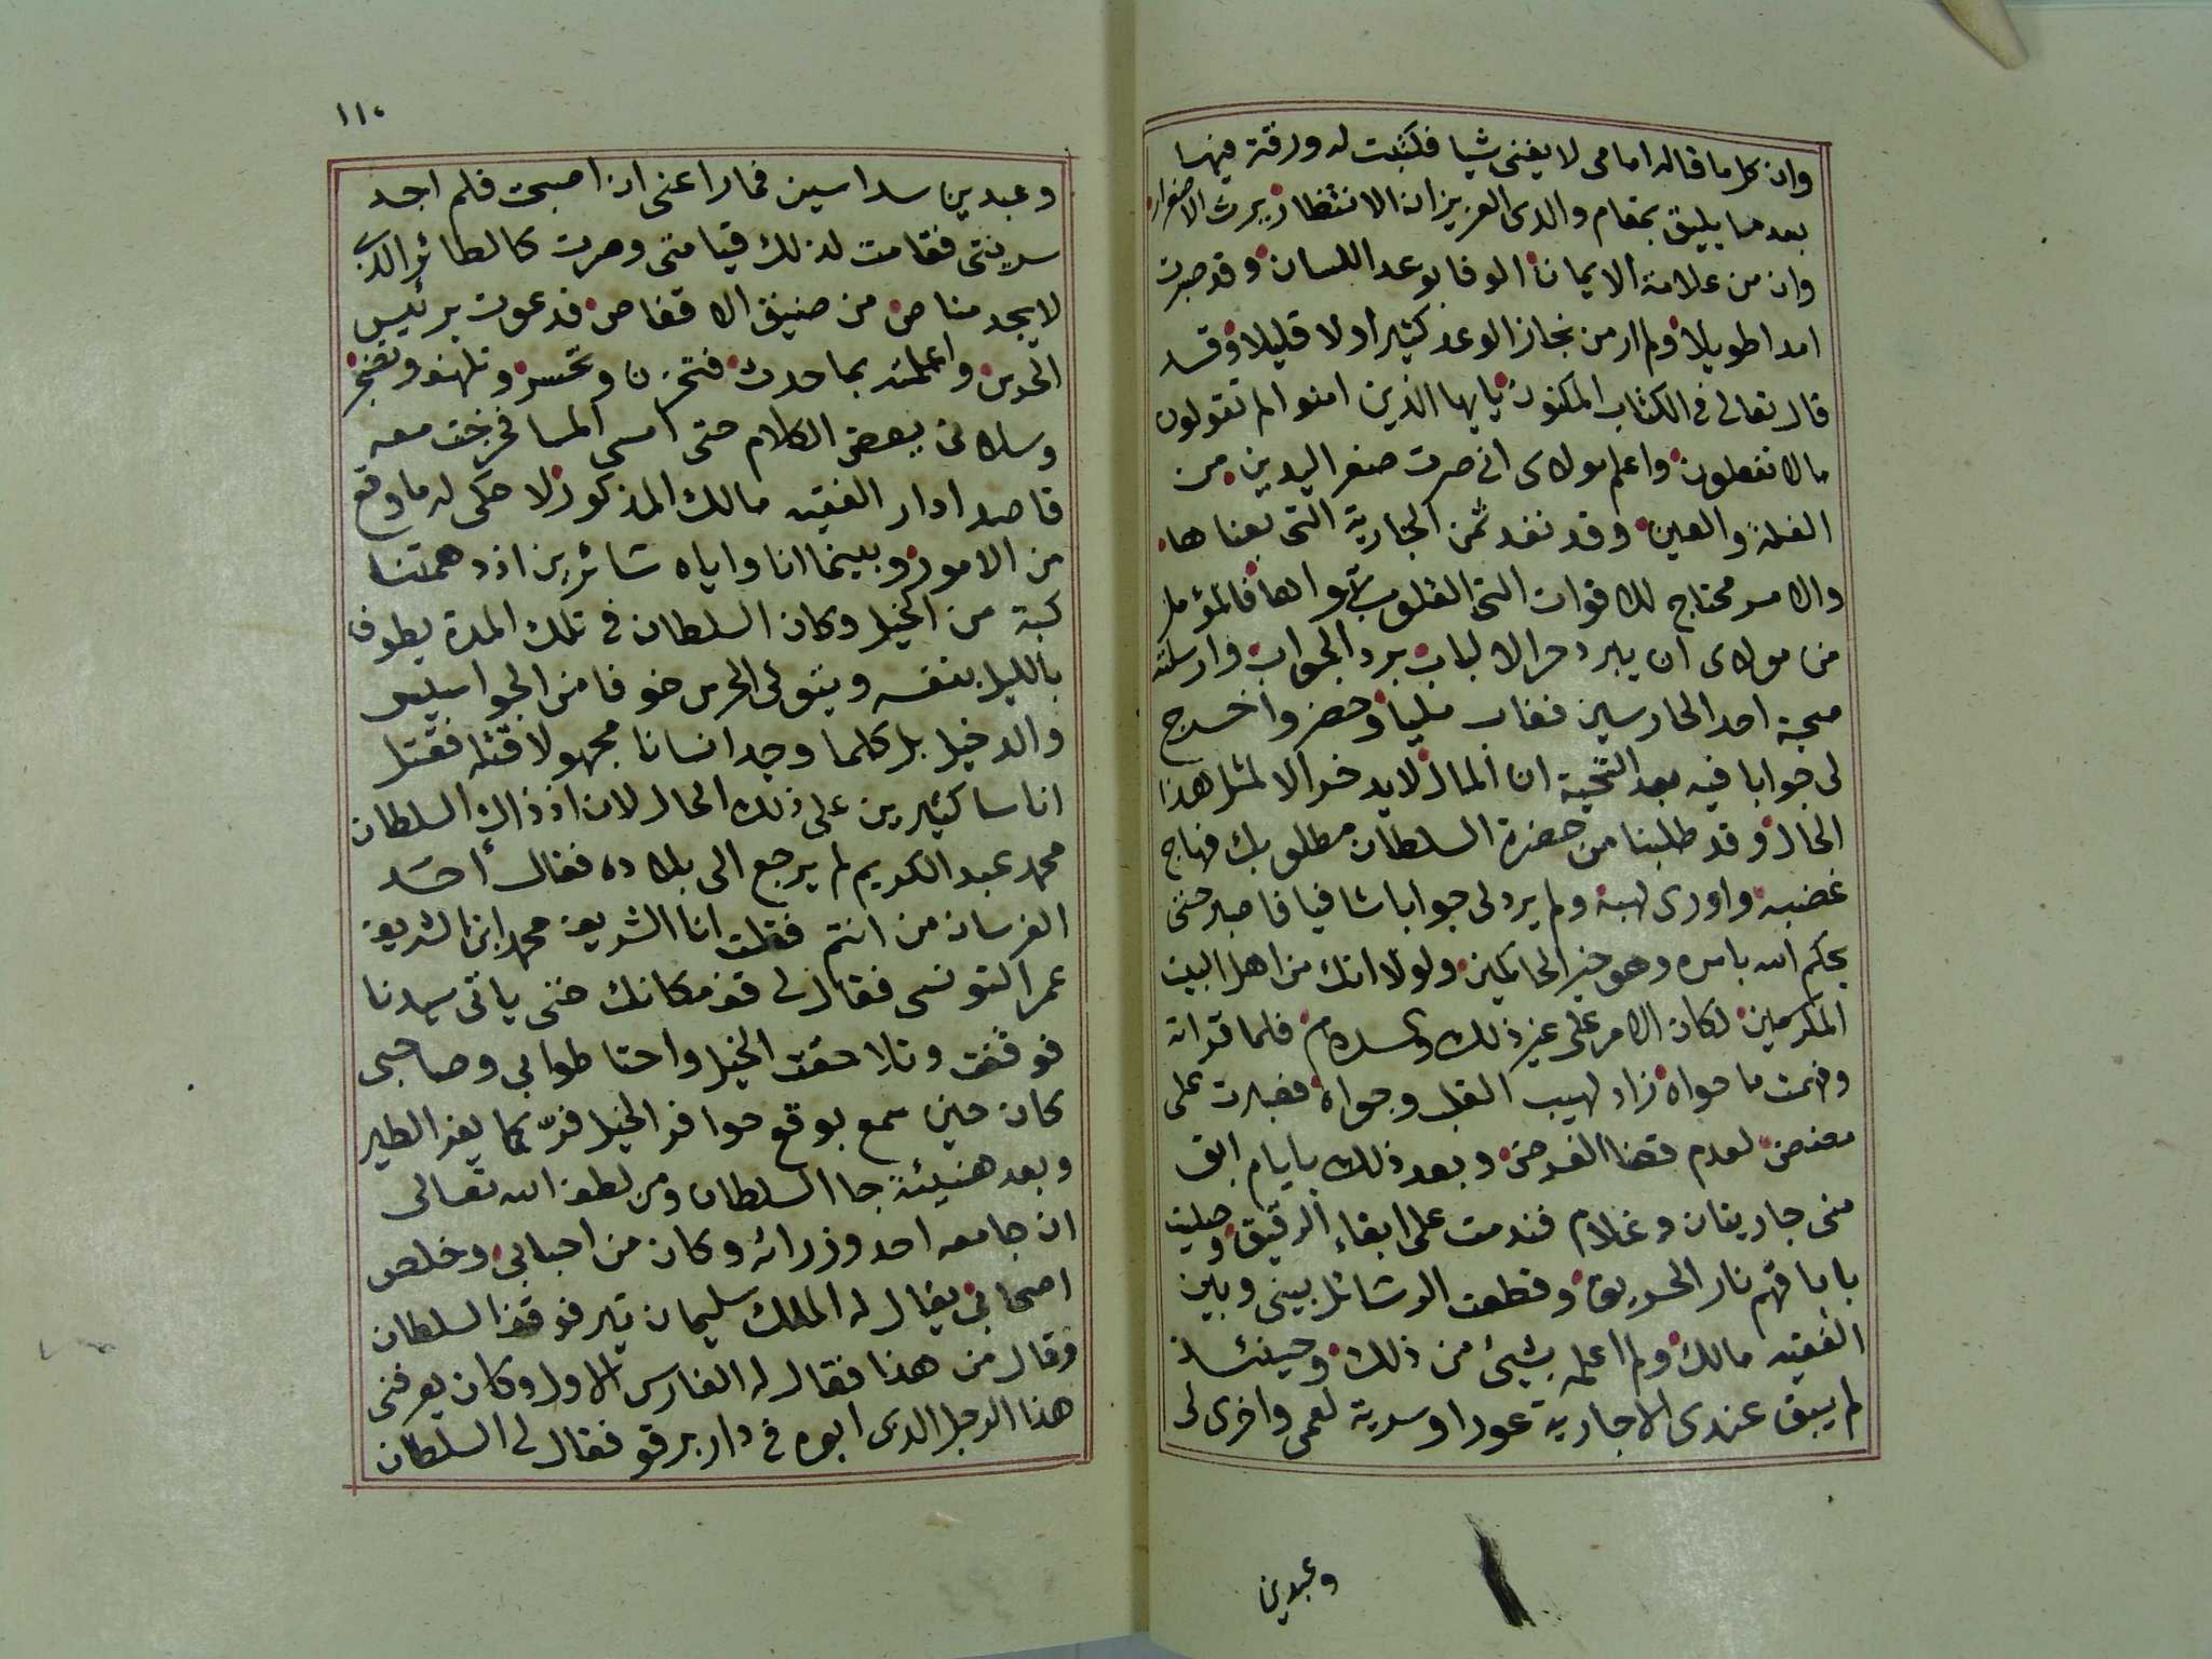 وان كل ما قاله امامى لا يغنى شيا فكتبت له ورقة فيها
بعد ما يليق بمقام والدى العزيز ان الانتظار يورث الاضرار
وان من علامة الايمان الوفا بوعد اللسان وقد صبرت
امدا طويلا ولم ار من نجاز الوعد كثيرا ولا قليلا وقد
قال تعالى فى الكتاب المكنون يايها الذين امنوا لم تقولون
مالا تفعلون واعلم مولاى انى صرت صفر اليدين من
الغلة والعين وقد نفد ثمن الجارية التى بعناها
والامر محتاج للاقوات التى القلوب بها فالمؤمل
من مولاى ان يبرد حر الالباب برد الجواب وارسلته
صحبة احد الحارسين فغاب مليا وحضر واخرج
لى جوابا فيه بعد التحية ان المال لا يدخر الا لمثل هذا
الحال وقد طلبنا من حضرة السلطان مطلوبك فهاج
غضبه واورى لهبه ولم يرد لى جوابا شافيا فاصبر حتى
يحكم الله بامره وهو خير الحاكمين ولولا انك من اهل البيت
المكرمين لكان الامر على غير ذلك والسلام فلما قراته
وفهمت ما حواه زاد لهيب القلب وجواه فصبرت على
مضض لعدم قضا الغرض وبعد ذلك بايام ابق
منى جاريتان وغلام فندمت على ابقاء الرقيق وصليت
باباقهم نار الحريق وقطعت الرسائل بينى وبين
الفقيه مالك ولم اعلمه بشيئ من ذلك وحينئذ
لم يبق عندى الا جارية عورا وسرية لعمى واخرى لى
وعبدين
١١٠
وعبدين سداسين فما راعنى اذ اصبحت فلم اجد
سريتى فقامت لذلك قيامتى وصرت كالطائر الذى
لا يجد مناص من ضيق الاقفاص فدعوت برئيس
الحرس واعلمته بما حدث فتحزن وتحسر وتلهف وتضجر
وسلانى ببعض الكلام حتى امسى المسا فخرجت معه
قاصدا دار الفقيه مالك المذكور لاحكى له ما وقع
من الامور وبينما انا واياه سائرين اذ دهمتنا
كبة من الخيل وكان السلطان فى تلك المدة يطوف
بالليل بنفسه ويتولى الحرس خوفا من الجواسيس
والدخيل بل كلما وجد انسانا مجهولا قتله فقتل
اناسا كثيرين على ذلك الحال لان اذ ذاك السلطان
محمد عبد الكريم لم يرجع الى بلاده فقال أحد
الفرسان من انتم فقلت انا الشريف محمد ابن الشريف
عمر التونسى فقال لى قف مكانك حتى ياتى سيدنا
فوقفت وتلاحقت الخيل واحتاطوا بى وصاحبى
كان حين سمع بوقع حوافر الخيل فرّ كما يفر الطير
وبعد هنيئة جا السلطان ومن لطف الله تعالى
ان جا معه احد وزرائه وكان من احبابى وخلص
اصحابى يقال له الملك سليمان تير فوقف السلطان
وقال من هذا فقال له الفارس الاول وكان يعرفنى
هذا الرجل الذى ابوه فى دار برقو فقال لى السلطان